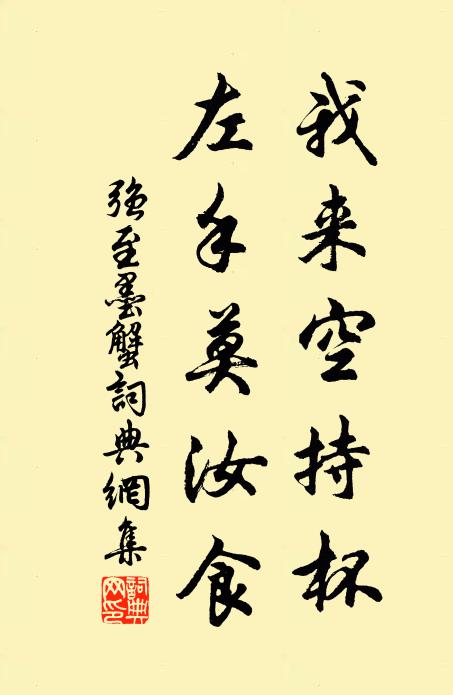 我来空持杯
左手莫汝食
强至墨蟹詞典網集
詞典网印